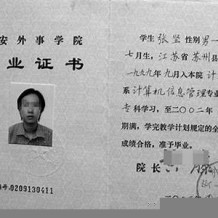 安外事学院
业证书
号.0209130411
学生 张坚 性别 男 一
七月生，江苏省苏州县
一九九九年九月入本院 计
系 计算机信息管理 专业
专科学习，至二〇〇二年
期满，学完教学计划规定的全
成绩合格，准予毕业。
院长